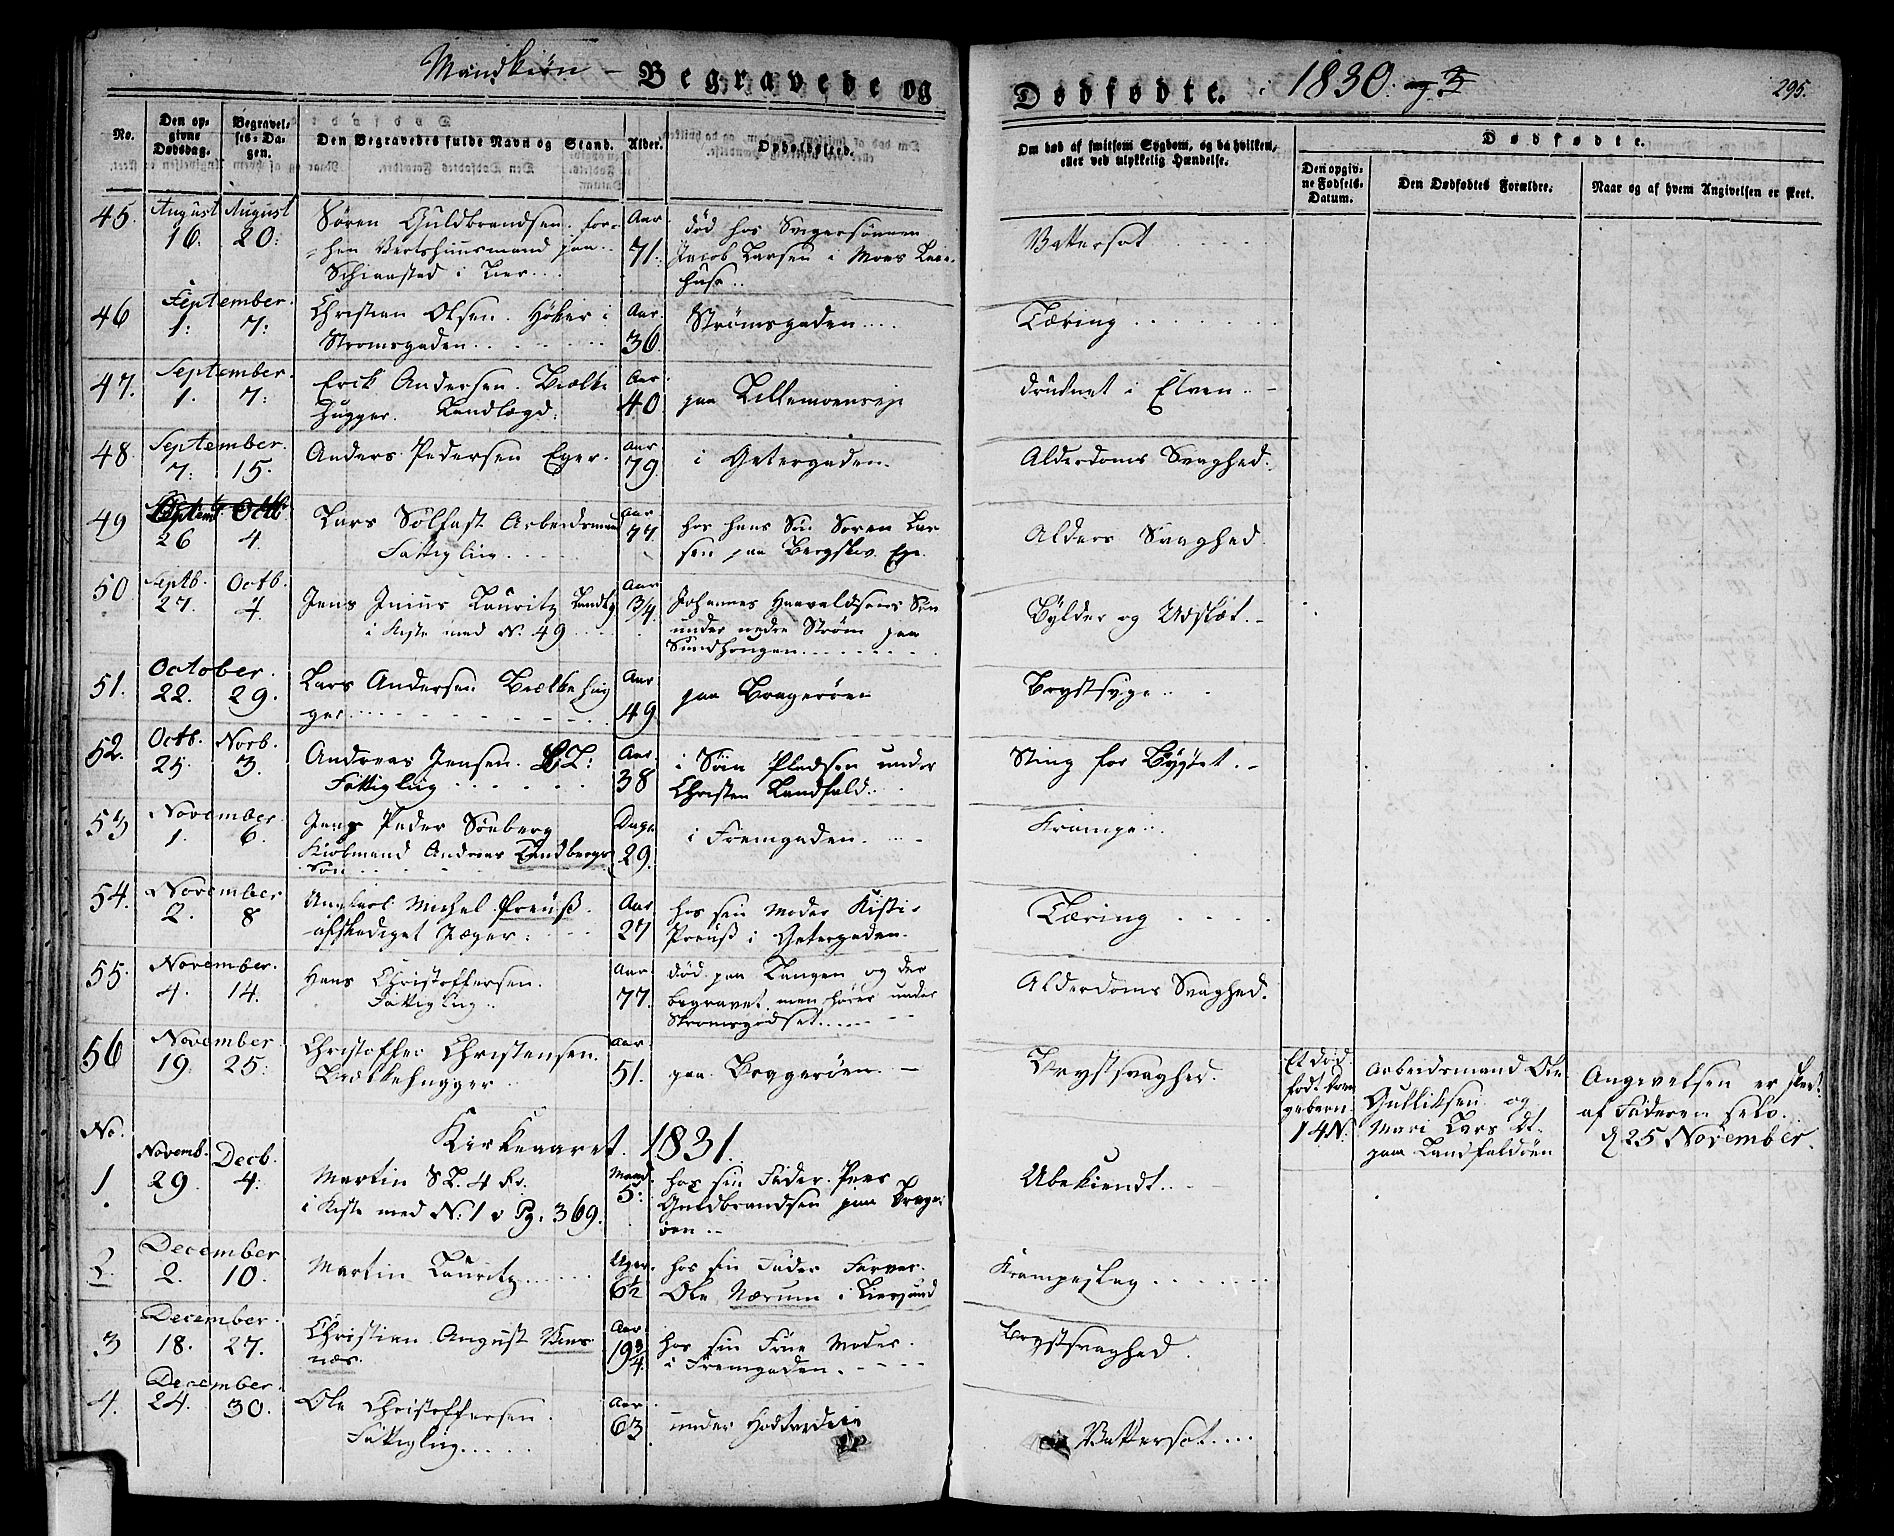 Mandkiøn – Begravede og
Dødfødte. i 1830.
295.
No.
Den op-
givne
Dødsdag.
Begravel-
ses-Da-
gen.
Den Begravedes fulde Navn og Stand.
Alder.
Opholdssted.
Om død af smitsom Sygdom, og da hvilken,
eller ved ulykkelig Hændelse.
Dødfødte.
Den opgiv-
ne Fødsels-
Datum.
Den Dødfødtes Forældre.
Naar og af hvem Angivelsen er skeet.
45. August 16. August 20: Søren Guldbrandsen for-
hen Vertshuusmand paa
i Lier
Aar 71.
død hos Svigersønnen
Jacob Larsen i Moes
huse
Vattersot
46 September 1: 7: Christian Olsen. Høker i
Strømsgaden
Aar. 36
Strømsgaden
Tæring
47. September 1. 7: Erik Andersen. Bielke
hugger. Landlægd:
Aar 40
paa
drudnet i Elven
48. September 7: 15. Anders Pedersen Eger.
Aar 79
i Getergaden.
Alderdoms Svaghed.
49 26 Octb. 4. Lars Solfast Arbeidsmand
Fattiglem
Aar 77
hos hans Søn Soren Lar
sen paa
Alders Svaghed.
50 Septb. 27. Octb. 4. Jens Lauritz
i Kiste med N. 49
Aar 3/4.
Johannes Haavaldsens Søn
under nedre Strøm paa
Sundhougen
Bylder og Udslæt.
51. October. 22. 29. Lars Andersen Bielkehug
ger.
Aar 49
paa Bragerøen
Brystsyge
52. Octb. 25 Novb. 3. Andreas Jensen.
Fattiglem
Aar. 38
i under
Christen Landfald.
Sting for Brystet.
53 November. 1. 6. Jens Peder Søeberg
Kiøbmand Andreas Tandbergs
Søn
Dage 29.
i Fremgaden.
Krampe
54. November 2. 8 Michel Preuß.
afskediget Jæger:
Aar 27
hos sin Moder
Preuß i Getergaden.
Tæring
55. November. 4. 14. Hans Christoffersen.
Fattiglem
Aar. 77.
død paa Tangen og der
begravet men hører under
Strømsgodset
Alderdoms Svaghed.
56 November 19. 25: Christoffer Christensen.
Bielkehugger
Aar 51.
paa Braggerøen
Brystsvaghed.
Et død
født
14 N.
Arbeidsmand Ole
Gulliksen og
Mari Lars Dt.
paa Landfaldøen
Angivelsen er skeet
af Faderen selv.
d 25 November.
No. Kirkeaaret. 1831.
1 Novemb. 29. Decb. 4: Martin
i Kiste med N: 1 Pg. 369.
Maad. 5:
hos sin Fader. Peer
Guldbrandsen paa Brager
øen
Ubekiendt.
2. December 2. 10. Martin Lauritz
Uger. 6½
hos sin Fader Farver.
Ole Nærum i Liersund
Krampeslag
3 December 18. 27. Christian August
næs.
Aar 19 3/4.
hos sin Frue Moder.
i Fremgaden.
Brystsvaghed.
4. December. 24. 30. Ole Christoffersen.
Fattiglem
Aar 63
under
Vattersot